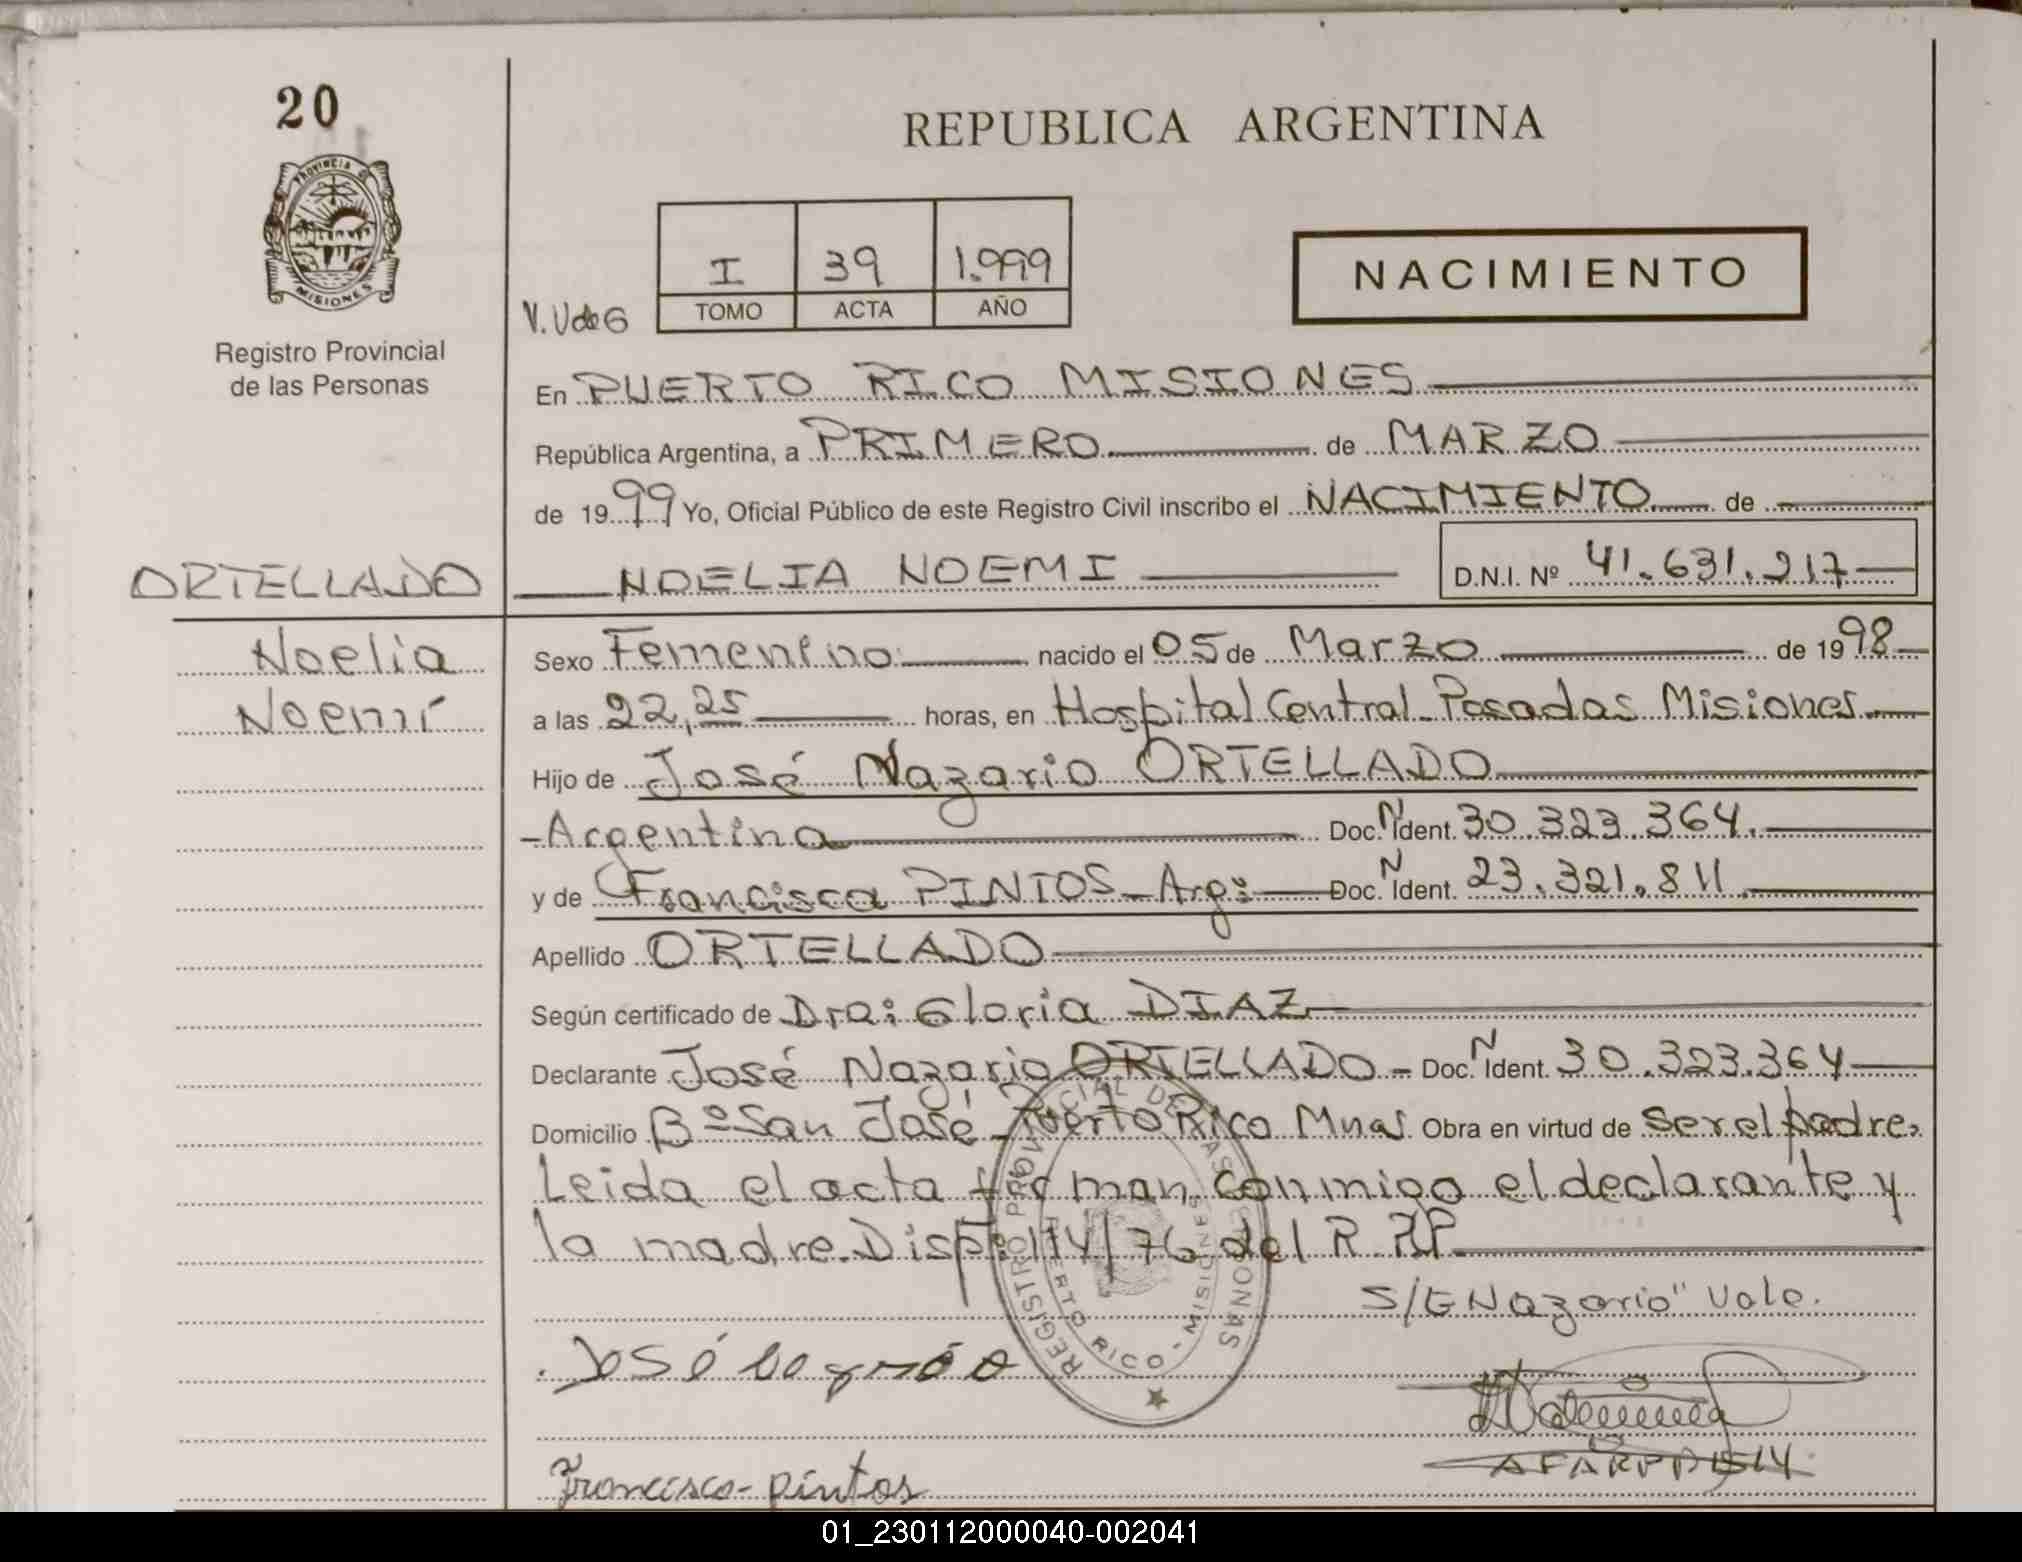 20
REPUBLICA ARGENTINA
PROVINCIA DE
MISIONES
Registro Provincial
de las Personas
V. V de G
I 39 1.999
TOMO ACTA AÑO
NACIMIENTO
En PUERTO RICO MISIONES
República Argentina, a PRIMERO de MARZO
de 1999 Yo, Oficial Público de este Registro Civil inscribo el NACIMIENTO de
ORTELLADO
NOELIA NOEMI D.N.I. Nº 41.631.217
Noelia
Noemí
Sexo Femenino nacido el 05 de Marzo de 1998
a las 22,25 horas, en Hospital Central-Posadas Misiones
Hijo de José Nazario ORTELLADO
-Argentina Doc. N Ident. 30.323.364.
y de Francisca PINTOS-Arg: Doc. N Ident. 23.321.811.
Apellido ORTELLADO
Según certificado de Dra: Gloria DIAZ
Declarante José Nazario ORTELLADO - Doc. N Ident. 30.323.364
Domicilio Bº San José-Puerto Rico Mnes Obra en virtud de ser el padre,
Leida el acta firman conmigo el declarante y
la madre. Disp: 114/76 del R.P.P.
S/E Nazario" Vale.
REGISTRO PROVINCIAL DE LAS PERSONAS
PUERTO RICO - MISIONES
José
Francisco-pintos
01_230112000040-002041